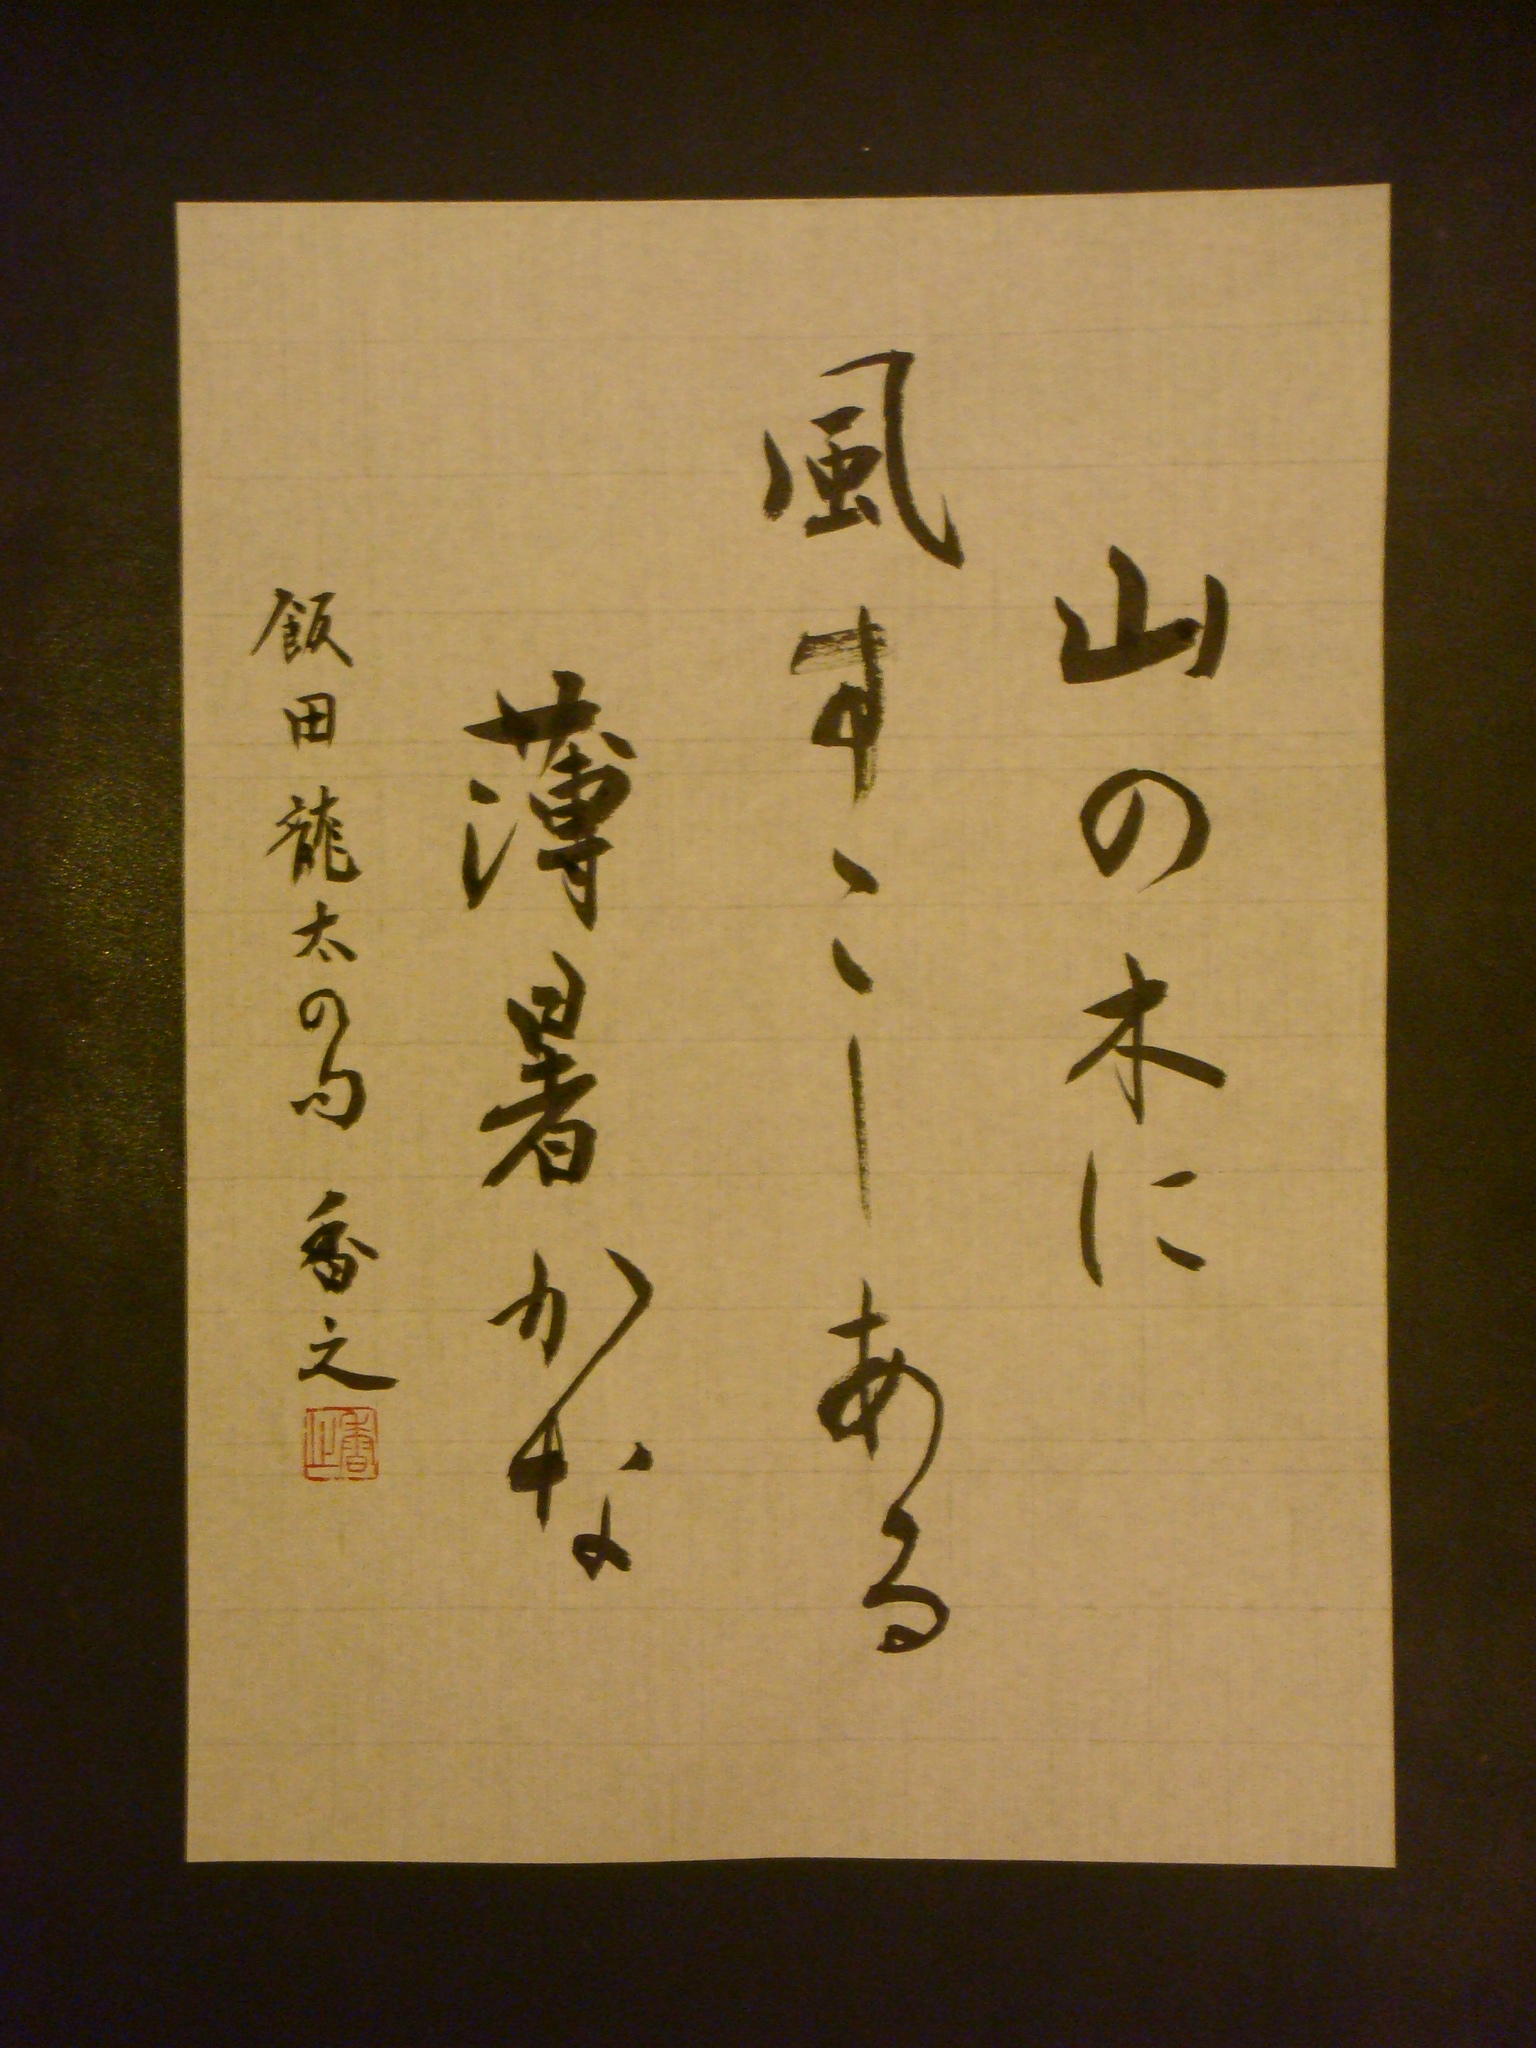 山の木に
風すこしある
薄暑かな
飯田龍太の句 香之
香之